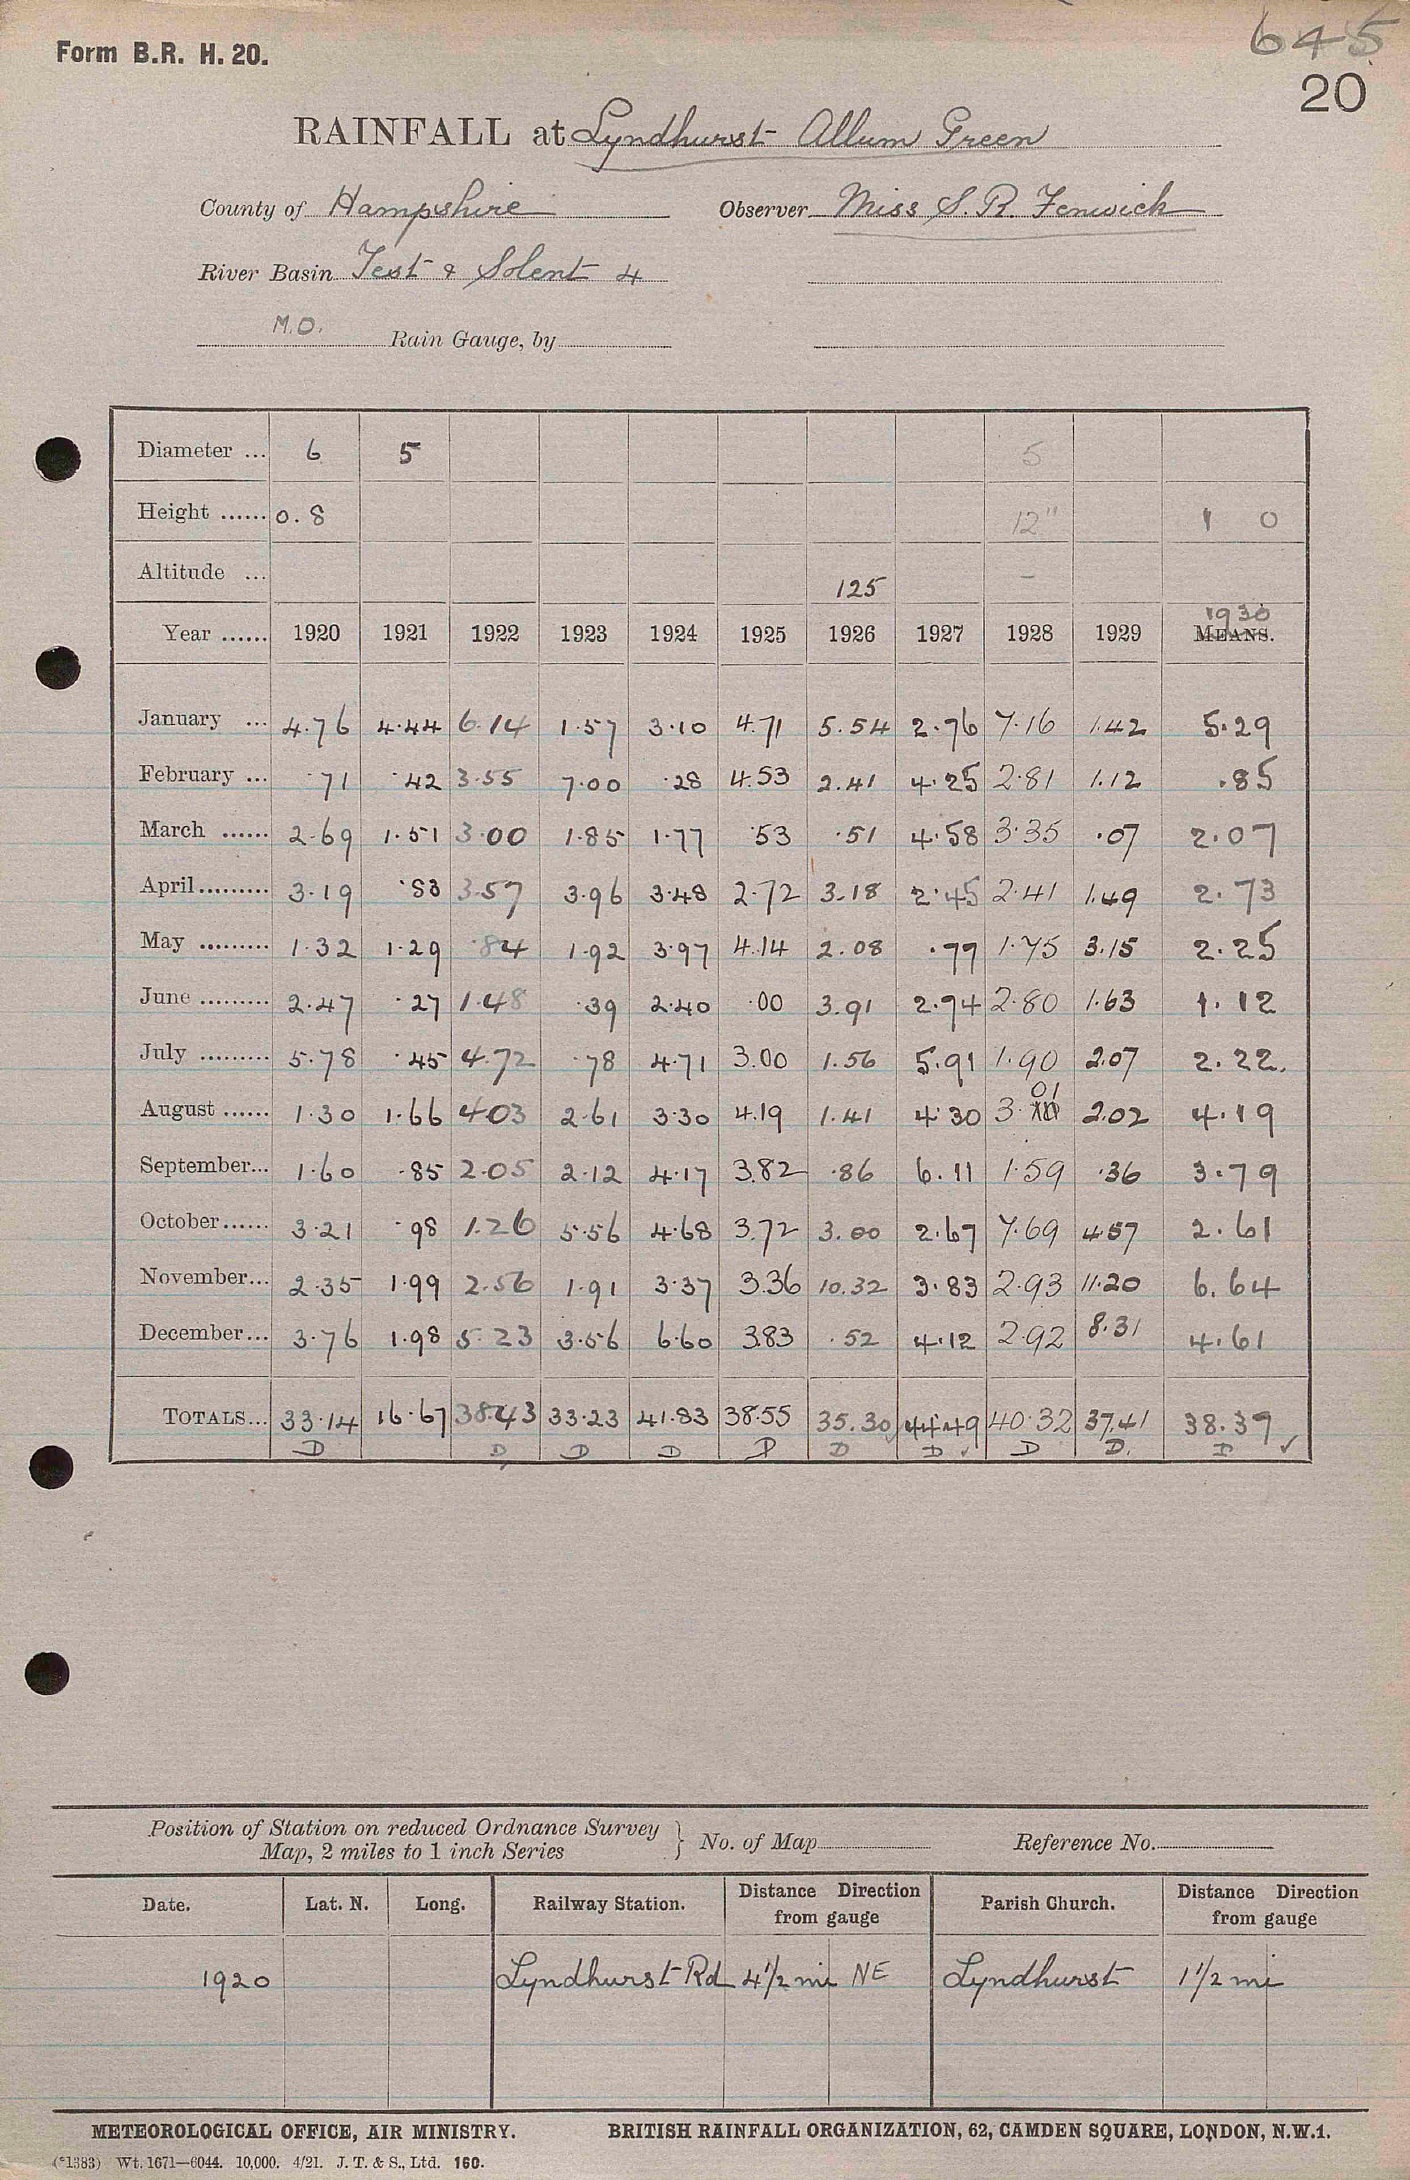 645
Form B.R. H. 20.
20
RAINFALL at Lyndhurst Allum Green
County of Hampshire Observer Miss S. R. Fenwick
River Basin Test & Solent 4
M.O. Rain Gauge, by
Diameter ... 6 5 5
Height ...... 0.8 12" 1 0
Altitude ... 125 –
1930
Year ...... 1920 1921 1922 1923 1924 1925 1926 1927 1928 1929 MEANS.
January ... 4.76 4.44 6.14 1.57 3.10 4.71 5.54 2.76 7.16 1.42 5.29
February ... .71 .42 3.55 7.00 .28 4.53 2.41 4.25 2.81 1.12 .85
March ...... 2.69 1.51 3.00 1.85 1.77 .53 .51 4.58 3.35 .07 2.07
April ......... 3.19 .83 3.57 3.96 3.48 2.72 3.18 2.45 2.41 1.49 2.73
May ......... 1.32 1.29 .84 1.92 3.97 4.14 2.08 .77 1.75 3.15 2.25
June ......... 2.47 .27 1.48 .39 2.40 .00 3.91 2.94 2.80 1.63 1.12
July ......... 5.78 .45 4.72 .78 4.71 3.00 1.56 5.91 1.90 2.07 2.22.
August ...... 1.30 1.66 4.03 2.61 3.30 4.19 1.41 4.30 3.01 2.02 4.19
September... 1.60 .85 2.05 2.12 4.17 3.82 .86 6.11 1.59 .36 3.79
October...... 3.21 .98 1.26 5.56 4.68 3.72 3.00 2.67 7.69 4.57 2.61
November... 2.35 1.99 2.56 1.91 3.37 3.36 10.32 3.83 2.93 11.20 6.64
December... 3.76 1.98 5.23 3.56 6.60 3.83 .52 4.12 2.92 8.31 4.61
TOTALS... 33.14 16.67 38.43 33.23 41.83 38.55 35.30 44.49 40.32 37.41 38.37
D D D D D D D ✓ D D. D ✓
Position of Station on reduced Ordnance Survey
Map, 2 miles to 1 inch Series } No. of Map Reference No.
Date. Lat. N. Long. Railway Station. Distance Direction from gauge Parish Church. Distance Direction from gauge
1920 Lyndhurst Rd 4½ mi NE Lyndhurst 1½ mi
METEOROLOGICAL OFFICE, AIR MINISTRY. BRITISH RAINFALL ORGANIZATION, 62, CAMDEN SQUARE, LONDON, N.W.1.
(*1383) Wt. 1671—6044. 10,000. 4/21. J. T. & S., Ltd. 160.